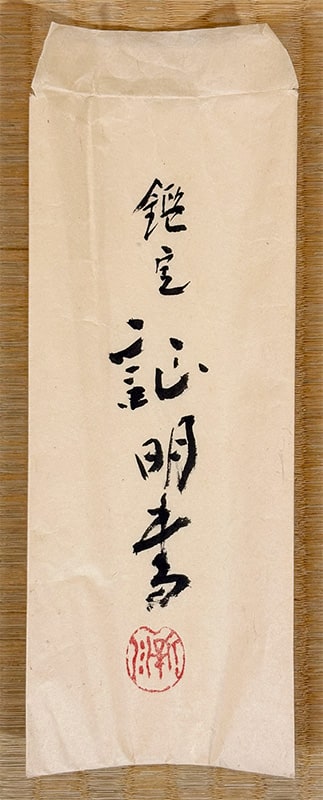 鑑定
証明書